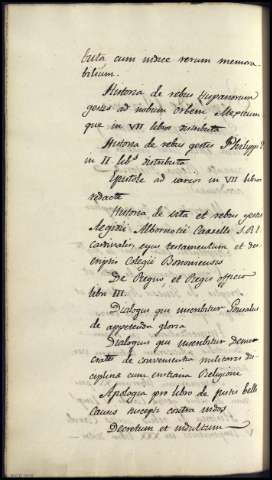 buta cum indice rerum memora
bilium.
Historia de rebus Hispanorum
gestis ad nobum orbem Mexicum
que in VII libro distributa
Historia de rebus gestis Philippi
in II lib.s distributa
Epistole ad varios in VII libro
redacte
Historia de vita et rebus gestis
Aegidii Albornotii Carselli S.R.E.
Cardinalis, ejus testamentum et des
criptio Colegii Bononiensis
De Regno, et Regis officio
libri III.
Dialogus qui inscribitur Gonsalus
de appetenda gloria
Dialogus qui inscribitur Democ
crates de convenientia militaris dis
ciplina cum cristiana Religione
Apologia pro libro de justis belli
causis suceptis contra indos
Decretum et indultum